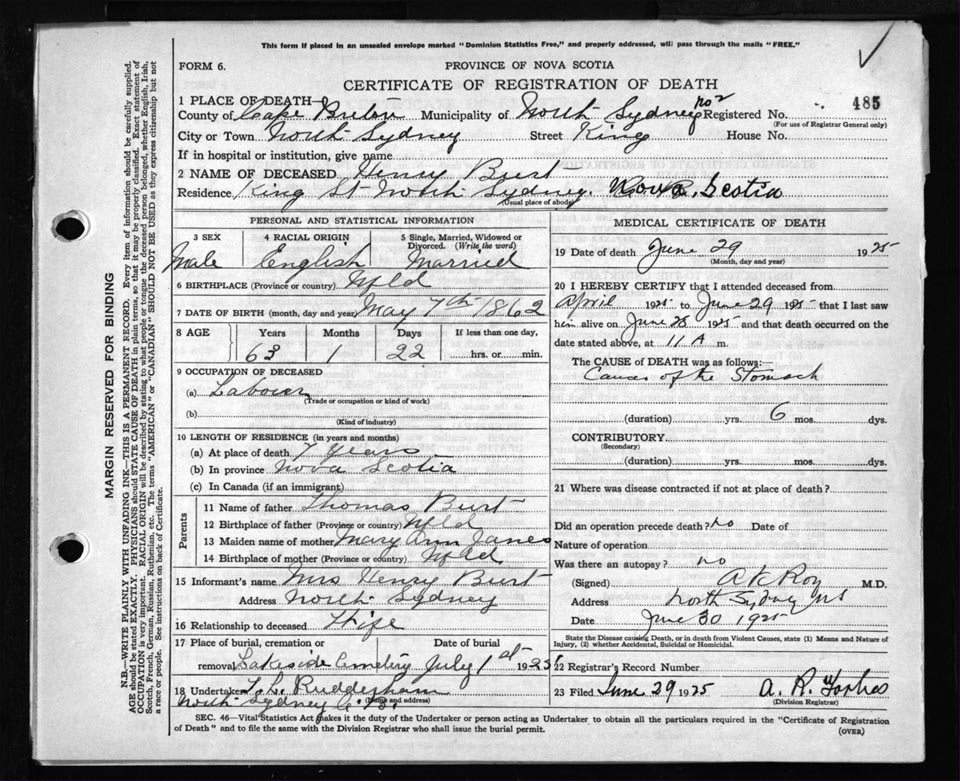 This form if placed in an unsealed envelope marked "Dominion Statistics Free," and properly addressed, will pass through the mails "FREE."
FORM 6.
PROVINCE OF NOVA SCOTIA
CERTIFICATE OF REGISTRATION OF DEATH
485
1 PLACE OF DEATH—
County of Cape Breton Municipality of North Sydney no 2 Registered No.
(For use of Registrar General only)
City or Town North Sydney Street King House No.
If in hospital or institution, give name
2 NAME OF DECEASED Henry Burt
Residence King St North Sydney. Nova Scotia
(Usual place of abode)
PERSONAL AND STATISTICAL INFORMATION
3 SEX 4 RACIAL ORIGIN 5 Single, Married, Widowed or Divorced. (Write the word)
Male English Married
6 BIRTHPLACE (Province or country) Nfld
7 DATE OF BIRTH (month, day and year) May 7th 1862
8 AGE Years Months Days If less than one day,
63 1 22 hrs. or min.
9 OCCUPATION OF DECEASED
(a) Labourer
(Trade or occupation or kind of work)
(b)
(Kind of industry)
10 LENGTH OF RESIDENCE (in years and months)
(a) At place of death 7 years
(b) In province Nova Scotia
(c) In Canada (if an immigrant)
Parents
11 Name of father Thomas Burt
12 Birthplace of father (Province or country) Nfld
13 Maiden name of mother Mary Ann Janes
14 Birthplace of mother (Province or country) Nfld
15 Informant's name Mrs Henry Burt
Address North Sydney
16 Relationship to deceased Wife
17 Place of burial, cremation or removal Date of burial
Lakeside Cemetery July 1st 1925
18 Undertaker T. L. Rudderham
North Sydney C. B.
(Name and address)
MEDICAL CERTIFICATE OF DEATH
19 Date of death June 29 1925
(Month, day and year)
20 I HEREBY CERTIFY that I attended deceased from
April 1925 to June 29 1925 that I last saw
him alive on June 28 1925 and that death occurred on
date stated above, at 11 A m.
The CAUSE of DEATH was as follows:—
Cancer of the Stomach
(duration) yrs. 6 mos. dys.
CONTRIBUTORY
(Secondary)
(duration) yrs. mos. dys.
21 Where was disease contracted if not at place of death?
Did an operation precede death? no Date of
Nature of operation
Was there an autopsy? no
(Signed) A K Roy M.D.
Address North Sydney NS
Date June 30 1925
State the Disease causing Death, or in death from Violent Causes, state (1) Means and Nature of Injury, (2) whether Accidental, Suicidal or Homicidal.
22 Registrar's Record Number
23 Filed June 29 1925 A. R. Forbes
(Division Registrar)
SEC. 46—Vital Statistics Act makes it the duty of the Undertaker or person acting as Undertaker to obtain all the particulars required in the "Certificate of Registration
of Death" and to file the same with the Division Registrar who shall issue the burial permit.
(OVER)
MARGIN RESERVED FOR BINDING
N.B.—WRITE PLAINLY WITH UNFADING INK—THIS IS A PERMANENT RECORD. Every item of information should be carefully supplied.
AGE should be stated EXACTLY. PHYSICIANS should STATE CAUSE OF DEATH in plain terms, so that it may be properly classified. Exact statement of
OCCUPATION is very important. RACIAL ORIGIN will be described by stating to what people or tongue the deceased person belonged, whether English, Irish,
Scotch, French, German, Russian, Ruthenian, etc. The terms "AMERICAN" or "CANADIAN" SHOULD NOT BE USED as they express citizenship but not
a race or people. See instructions on back of Certificate.